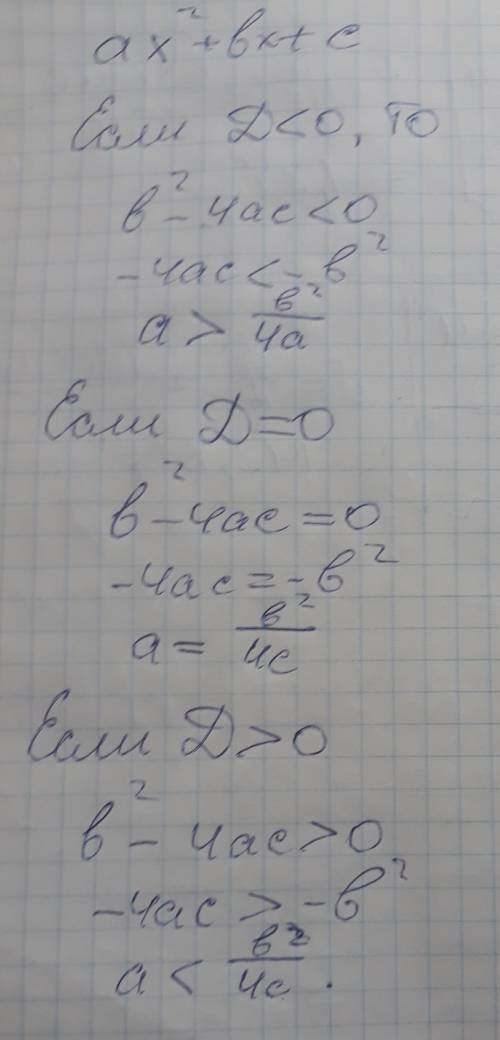 ax²+bx+c
Если D<0, то
b²-4ac<0
-4ac<-b²
a> b²/4a
Если D=0
b²-4ac=0
-4ac=-b²
a= b²/4c
Если D>0
b²-4ac>0
-4ac>-b²
a< b²/4c.